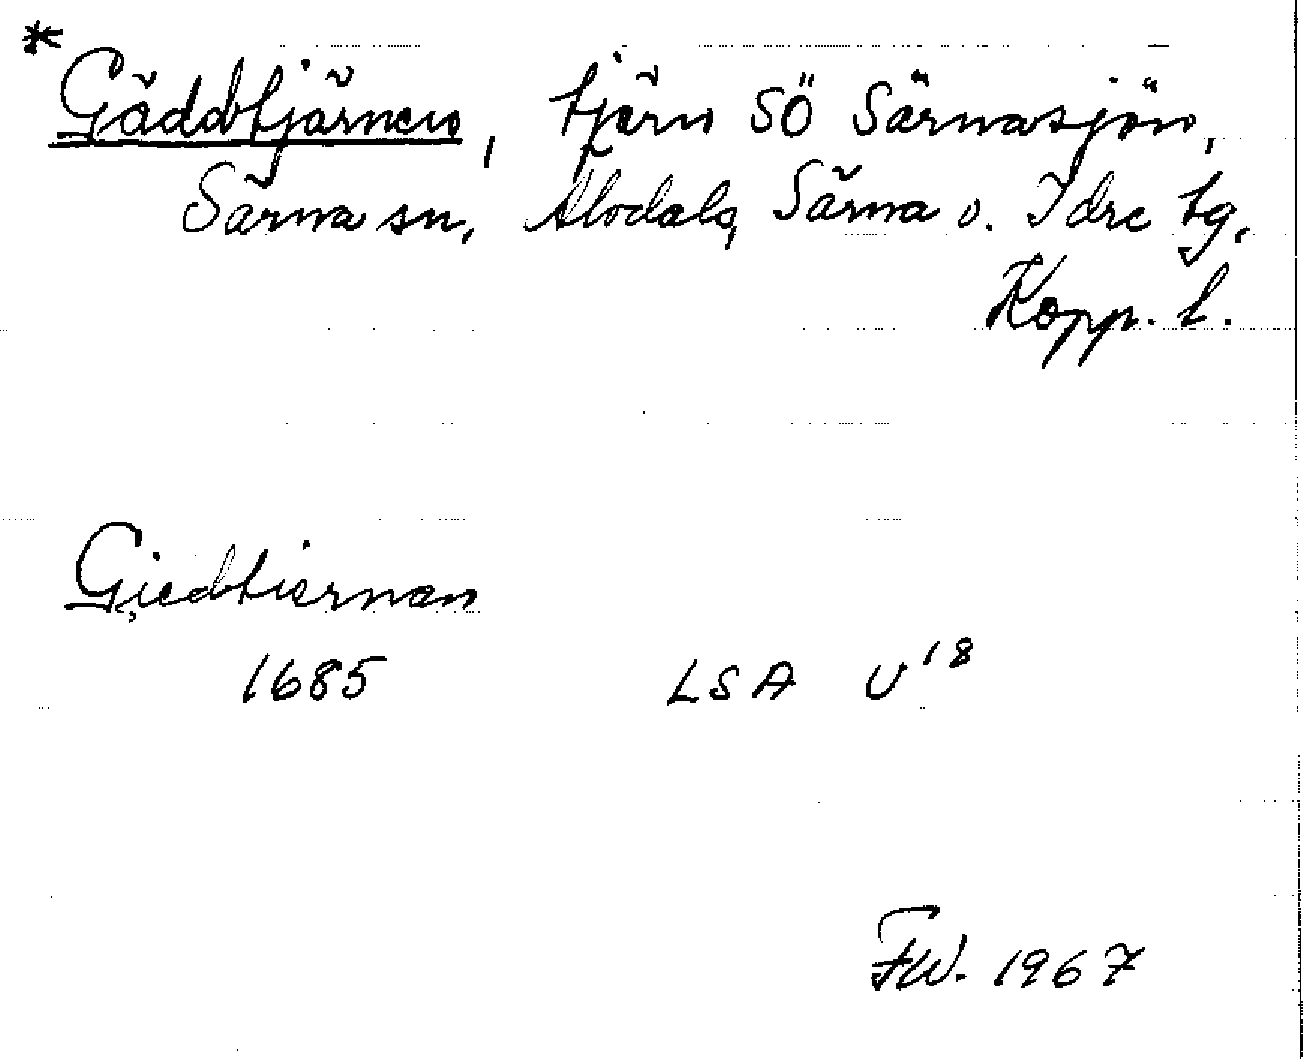 * Gäddtjärnen, tjärn SÖ Särnasjön,
Särna sn, Älvdals, Särna o. Idre tg,
Kopp. l.
Giedtiernan
1685 LSA U¹⁸
F.W. 1967